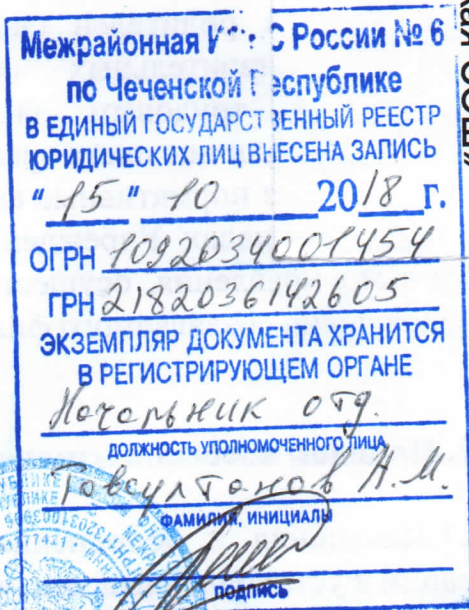 Межрайонная ИФНС России № 6
по Чеченской Республике
В ЕДИНЫЙ ГОСУДАРСТВЕННЫЙ РЕЕСТР
ЮРИДИЧЕСКИХ ЛИЦ ВНЕСЕНА ЗАПИСЬ
"15" 10 2018 г.
ОГРН 1092034001454
ГРН 2182036142605
ЭКЗЕМПЛЯР ДОКУМЕНТА ХРАНИТСЯ
В РЕГИСТРИРУЮЩЕМ ОРГАНЕ
Начальник отд.
ДОЛЖНОСТЬ УПОЛНОМОЧЕННОГО ЛИЦА
Товсултанов А.М.
ФАМИЛИЯ, ИНИЦИАЛЫ
ПОДПИСЬ